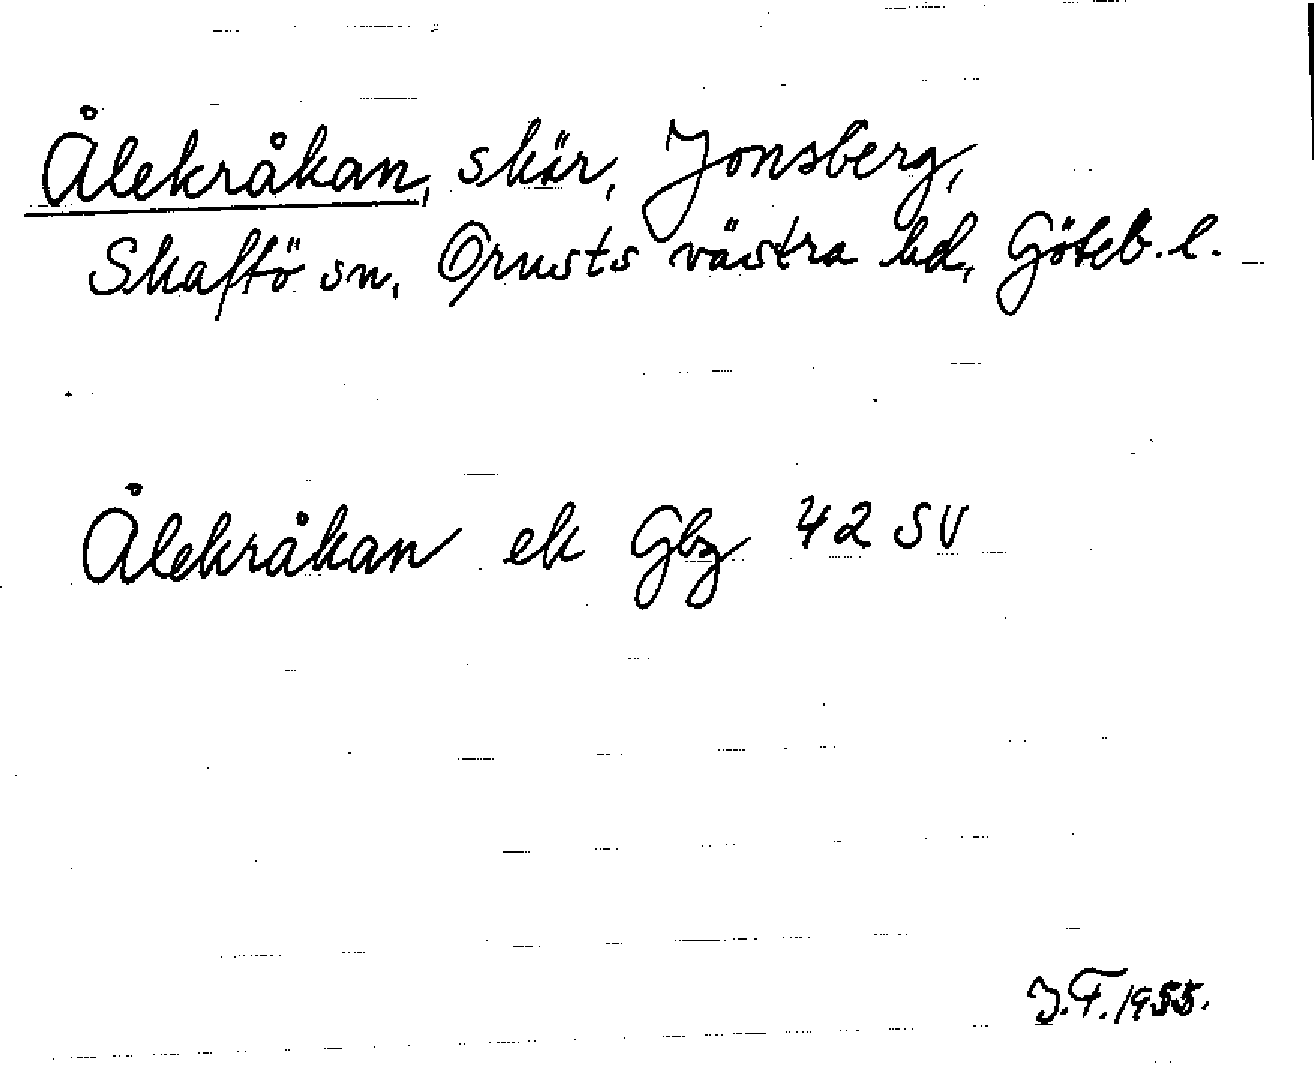 Ålekråkan, skär, Jonsberg,
Skaftö sn, Orusts västra hd, Göteb. l.
Ålekråkan ek Gbg 42 SV
J.F. 1955.